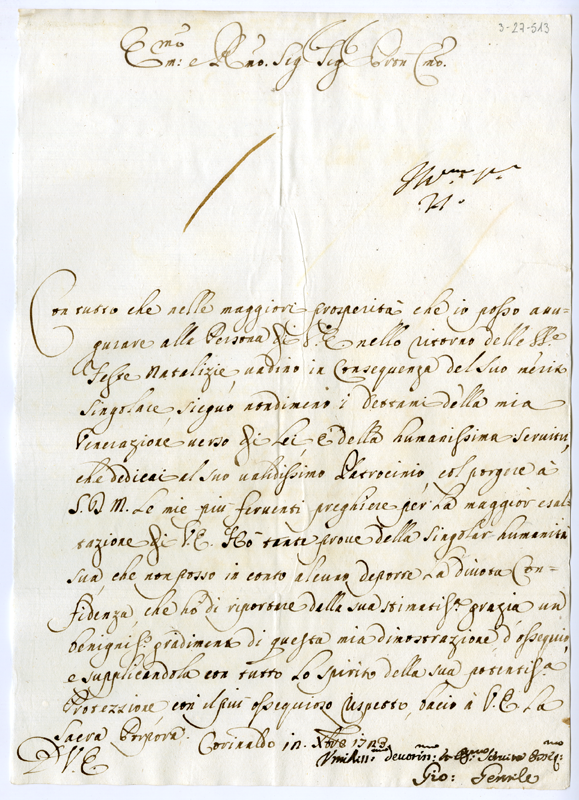 3-27-513
Em:mo e Rmo. Sig Sig Pron Cmo.
Con tutto che nelle maggiori prosperità che io posso au-
gurare alla Persona di V. E nello ritorno delle SS.e
Feste Natalizie, vadino in Consequenza del Suo merito
Singolare, sieguo nondimeno i Dettami della mia
Venerazione verso di Lei, e della humanissima servitù,
che dedicai al suo validissimo Patrocinio, col porgere à
S. D. M. Le mie più ferventi preghiere per La maggior esal-
tazione di V.E. Hò tante prove della Singolar humanità
sua, che non posso in conto alcuno deporre La divota Con-
fidenza, che ho di riportare dalla sua stimatiss.a grazia un
benigniss.o gradimento di questa mia dimostrazione d'ossequio,
e supplicandola con tutto Lo spirito della sua potentiss.a
Protezzione con il più ossequioso rispetto, bacio à V. E La
Sacra Porpora. Corinaldo in. Xbre
D V E
Gio: Gentile